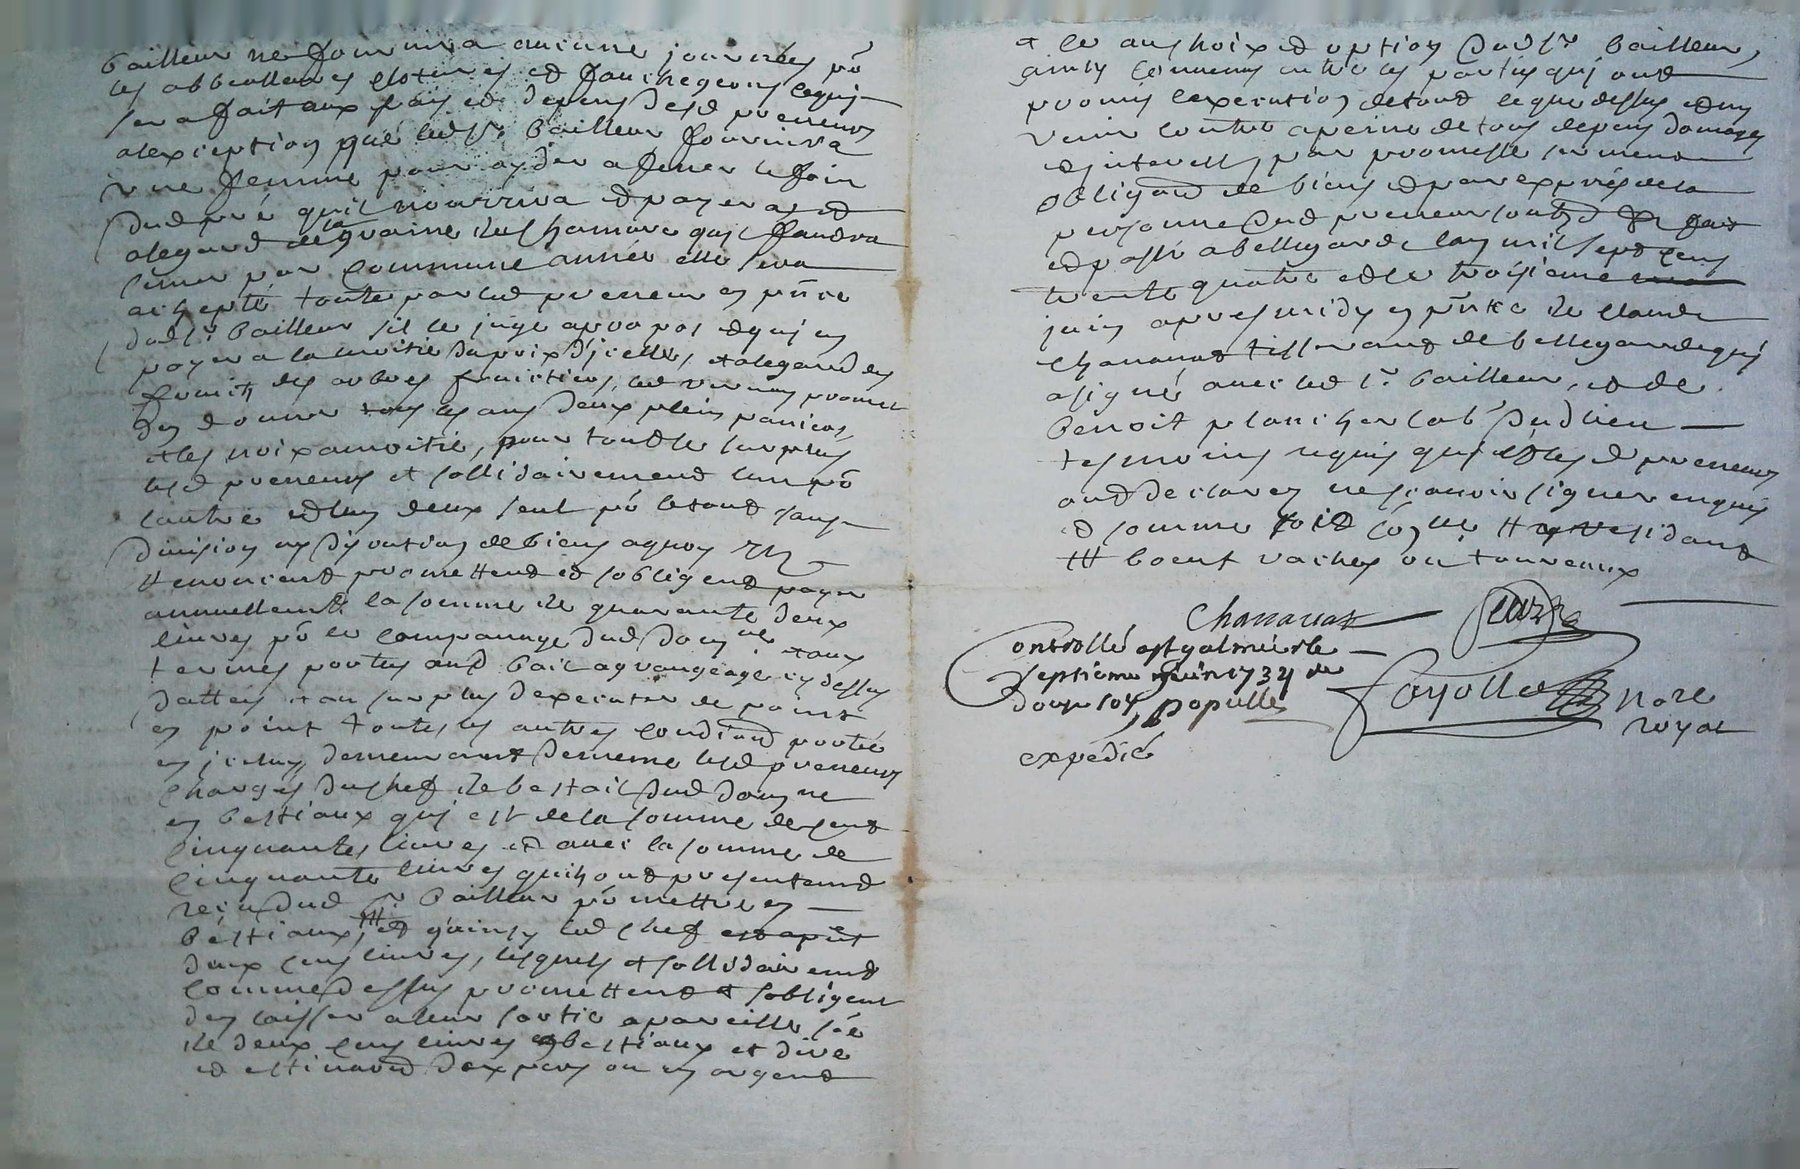 bailleur ne fournira aucune journées pō
les abbeullages clotures et fauchegeons lequi
sera fait aux frais et depens desd preneurs
alexception que led Sr. bailleur fournira
une femme pour ayder a fener le foin
dud pré quil nourrira et payera et
alegard de la graine de chanavre quil faudra
semer par commune année elle sera
achepté toute par led preneur en pñce
dud Sr. bailleur sil le juge apropos et qui en
payera la moitié du prix dicelles, et alegard des
fruits des arbres fruictiers, led preneurs promet
den donner tous les ans deux plein paniers,
et les noix a moitié, pour tout le surplus
lesd preneurs et sollidairement lun pō
lautre et lun deux seul pō le tout sans
division ny discution de biens a quoy
renoncent promettent et sobligent payer
annuellemt la somme de quarante deux
livres pō le compannage dud domne et aux
termes portes aud bail a grangeage cy dessus
datteis et au surplus dexecuter de point
en point toutes les autres condions portée
en iceluy, demeurant de meme lesd preneurs
charges du chef de bestail dud domne
en bestiaux qui est de la somme de cent
cinquantes livres et avec la somme de
cinquante livres quils ont presentemt
recu dud Sr. bailleur pō mettre en
bestiaux, ttt et quainsy led chef est apñt
deux cens livres, lesquels et sollidairemt
comme dessus promettent et sobligent
den laisser a leur sortie a pareille sōe
de deux cens livres en bestiaux et dire
et estimaōn dexpers ou en argent
et ce au choix et option dud Sr bailleur,
ainsy convenu entre les parties qui ont
promis lexecution de tout ce que dessus et ny
venir contre a peine de tous depens domages
et interests par promesse serment
obligaōn de biens et par exprés de la
personne dud preneur soubz fait
et passé a bellegarde lan mil sept cens
trente quatre et le troisieme
juin apres midy en pñce de claude
chanavat tisserand de bellegarde qui
a signé avec led Sr. bailleur, et de
benoit plancher lab dud lieu
tesmoins requis qui et lesd preneurs
ont declarez ne scavoir signer enquis
et somme soit cōlle tt residant
ttt boeuf vaches ou taureaux
Chanavat
Controllé a st galmier le
septieme juin 1734 re
douze sols populle
Fayolle nore
royal
expédié